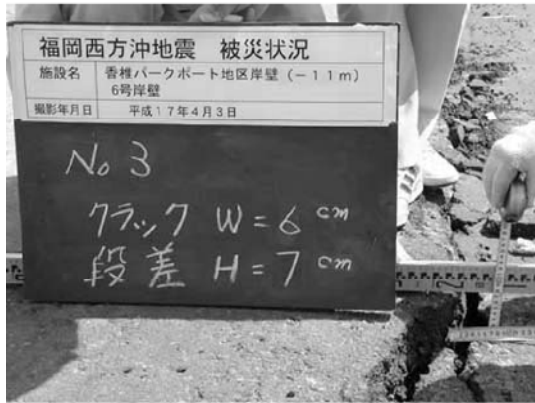 福岡西方沖地震 被災状況
施設名 香椎パークポート地区岸壁(-11m)
6号岸壁
撮影年月日 平成17年4月3日
No 3
クラック W=6 cm
段差 H=7 cm